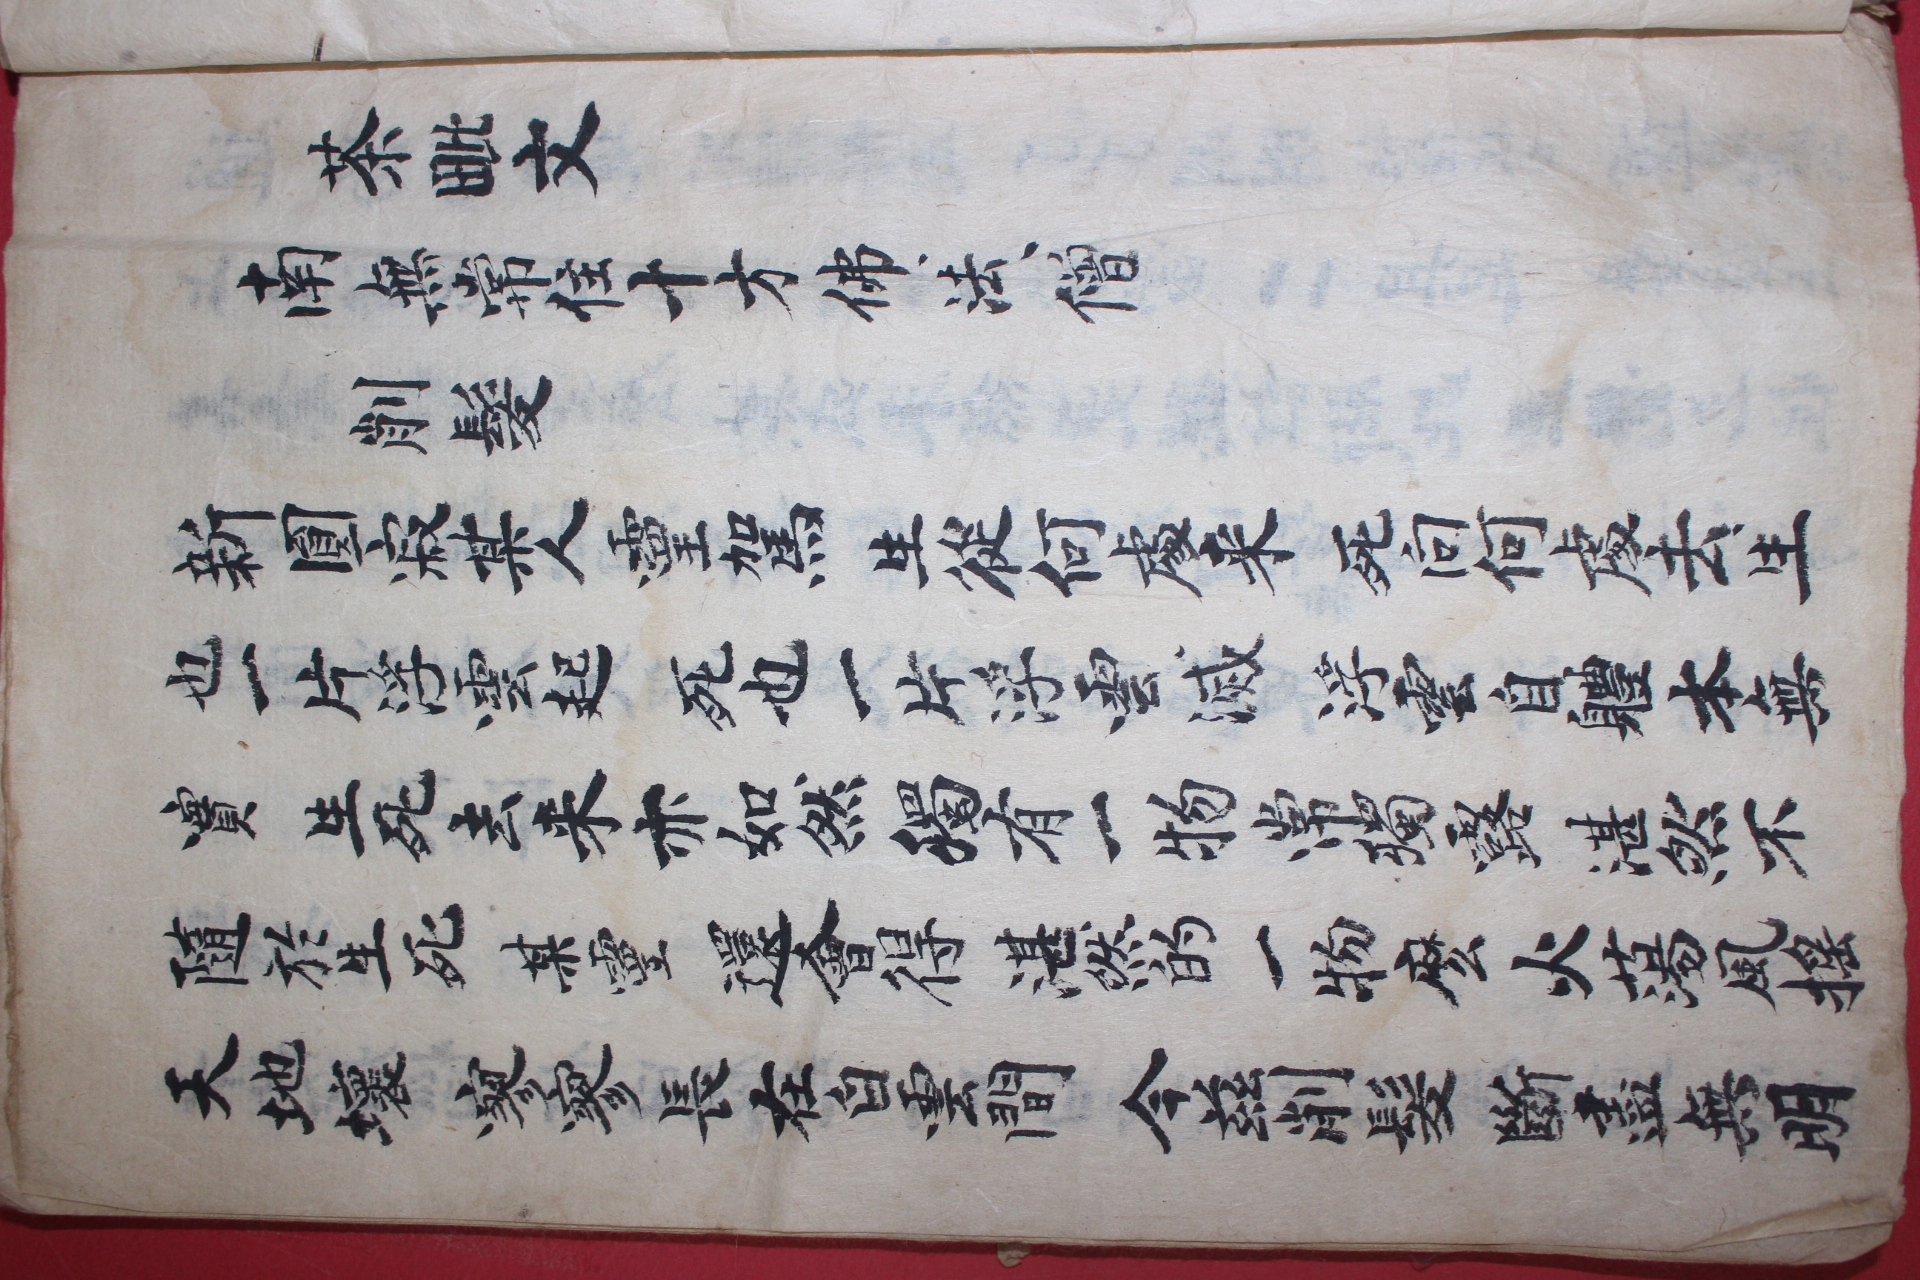 茶毗文
南無常住十方佛、法、僧
削髮
新圓寂某人靈駕 生從何處来 死向何處去、生
也一片浮雲起 死也一片浮雲滅 浮雲自體本無
實 生死去来亦如然 獨有一物常獨露 湛然不
隨於生死 某靈 還會得 湛然的 一物麽 火蕩風搖
天地壞 寥寥長在白雲間 今茲削髮 斷盡無明